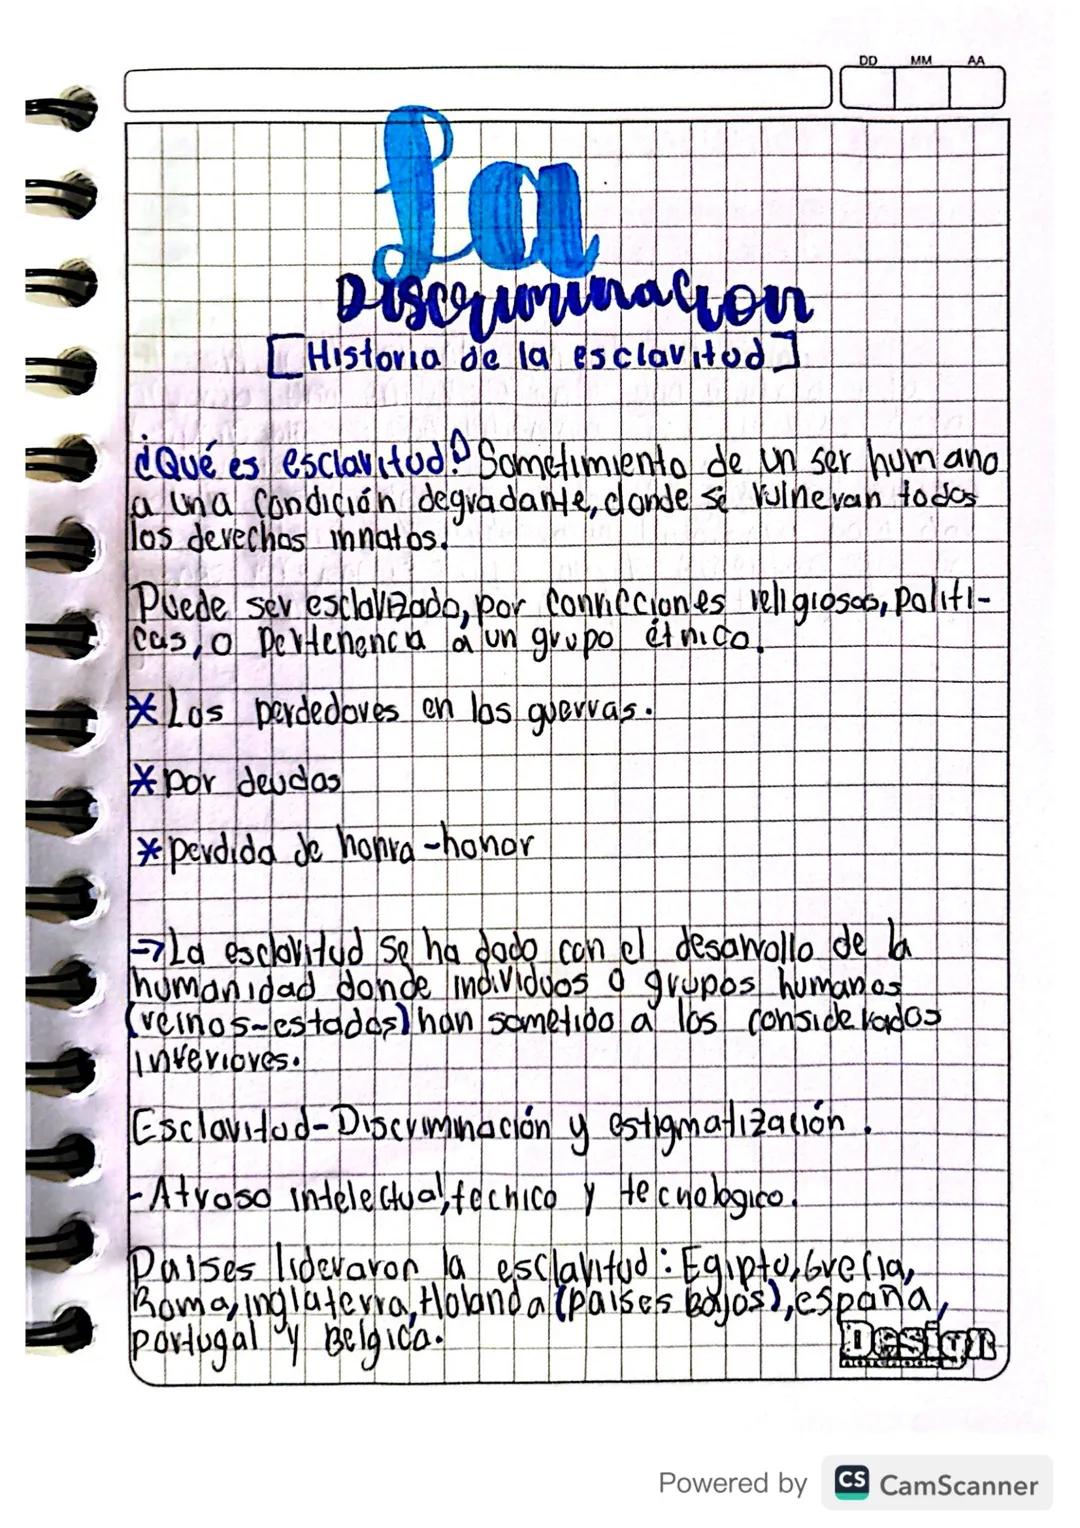 DD MM AA
La
Discriminación
[Historia de la esclavitud]
¿Qué es esclavitud? Sometimiento de un ser humano
a una condición degradante, donde se vulneran todos
los derechos innatos.
Puede ser esclavizado, por convicciones religiosas, políti-
cas, o pertenencia a un grupo étnico.
* Los perdedores en las guerras.
* por deudas
* perdida de honra - honor
→ La esclavitud se ha dado con el desarrollo de la
humanidad donde individuos o grupos humanos
(reinos-estados) han sometido a los considerados
inveriores.
Esclavitud - Discriminación y estigmatización.
- Atraso intelectual, técnico y tecnologico.
Paises lideraron la esclavitud: Egipto, Grecia,
Roma, inglaterra, Holanda (paises Bajos), españa,
portugal y Belgica.
Design
Powered by CS CamScanner